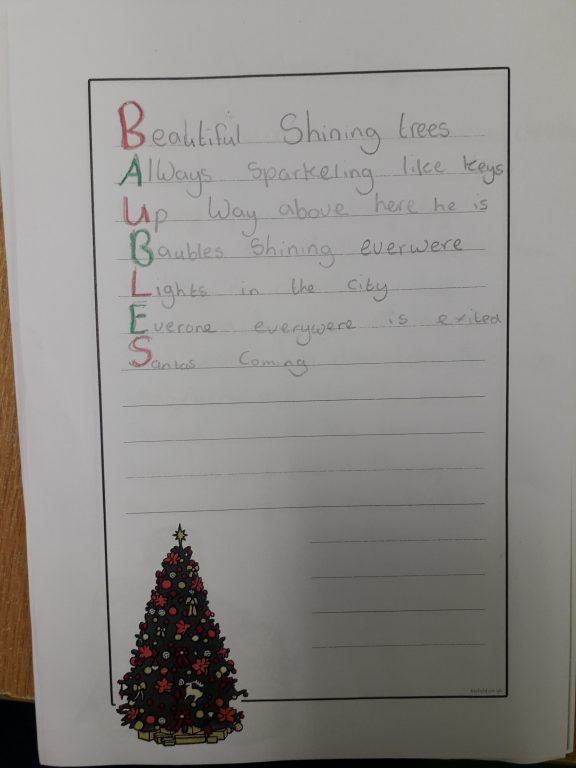 Beautiful Shining trees
Always Sparkeling like keys
Up Way above here he is
Baubles Shining everwere
Lights in the city
Everone everywere is exited
Santas Coming